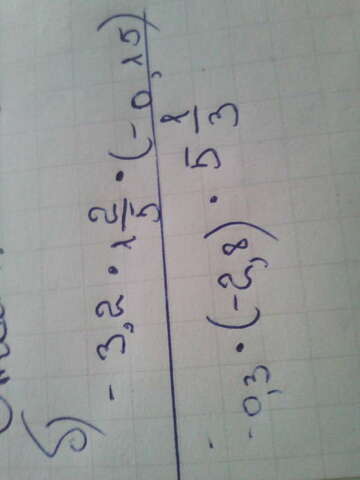 б) - 3,2 · 1 2/5 · (- 0,15)
- 0,3 · (-2,8) · 5 1/3